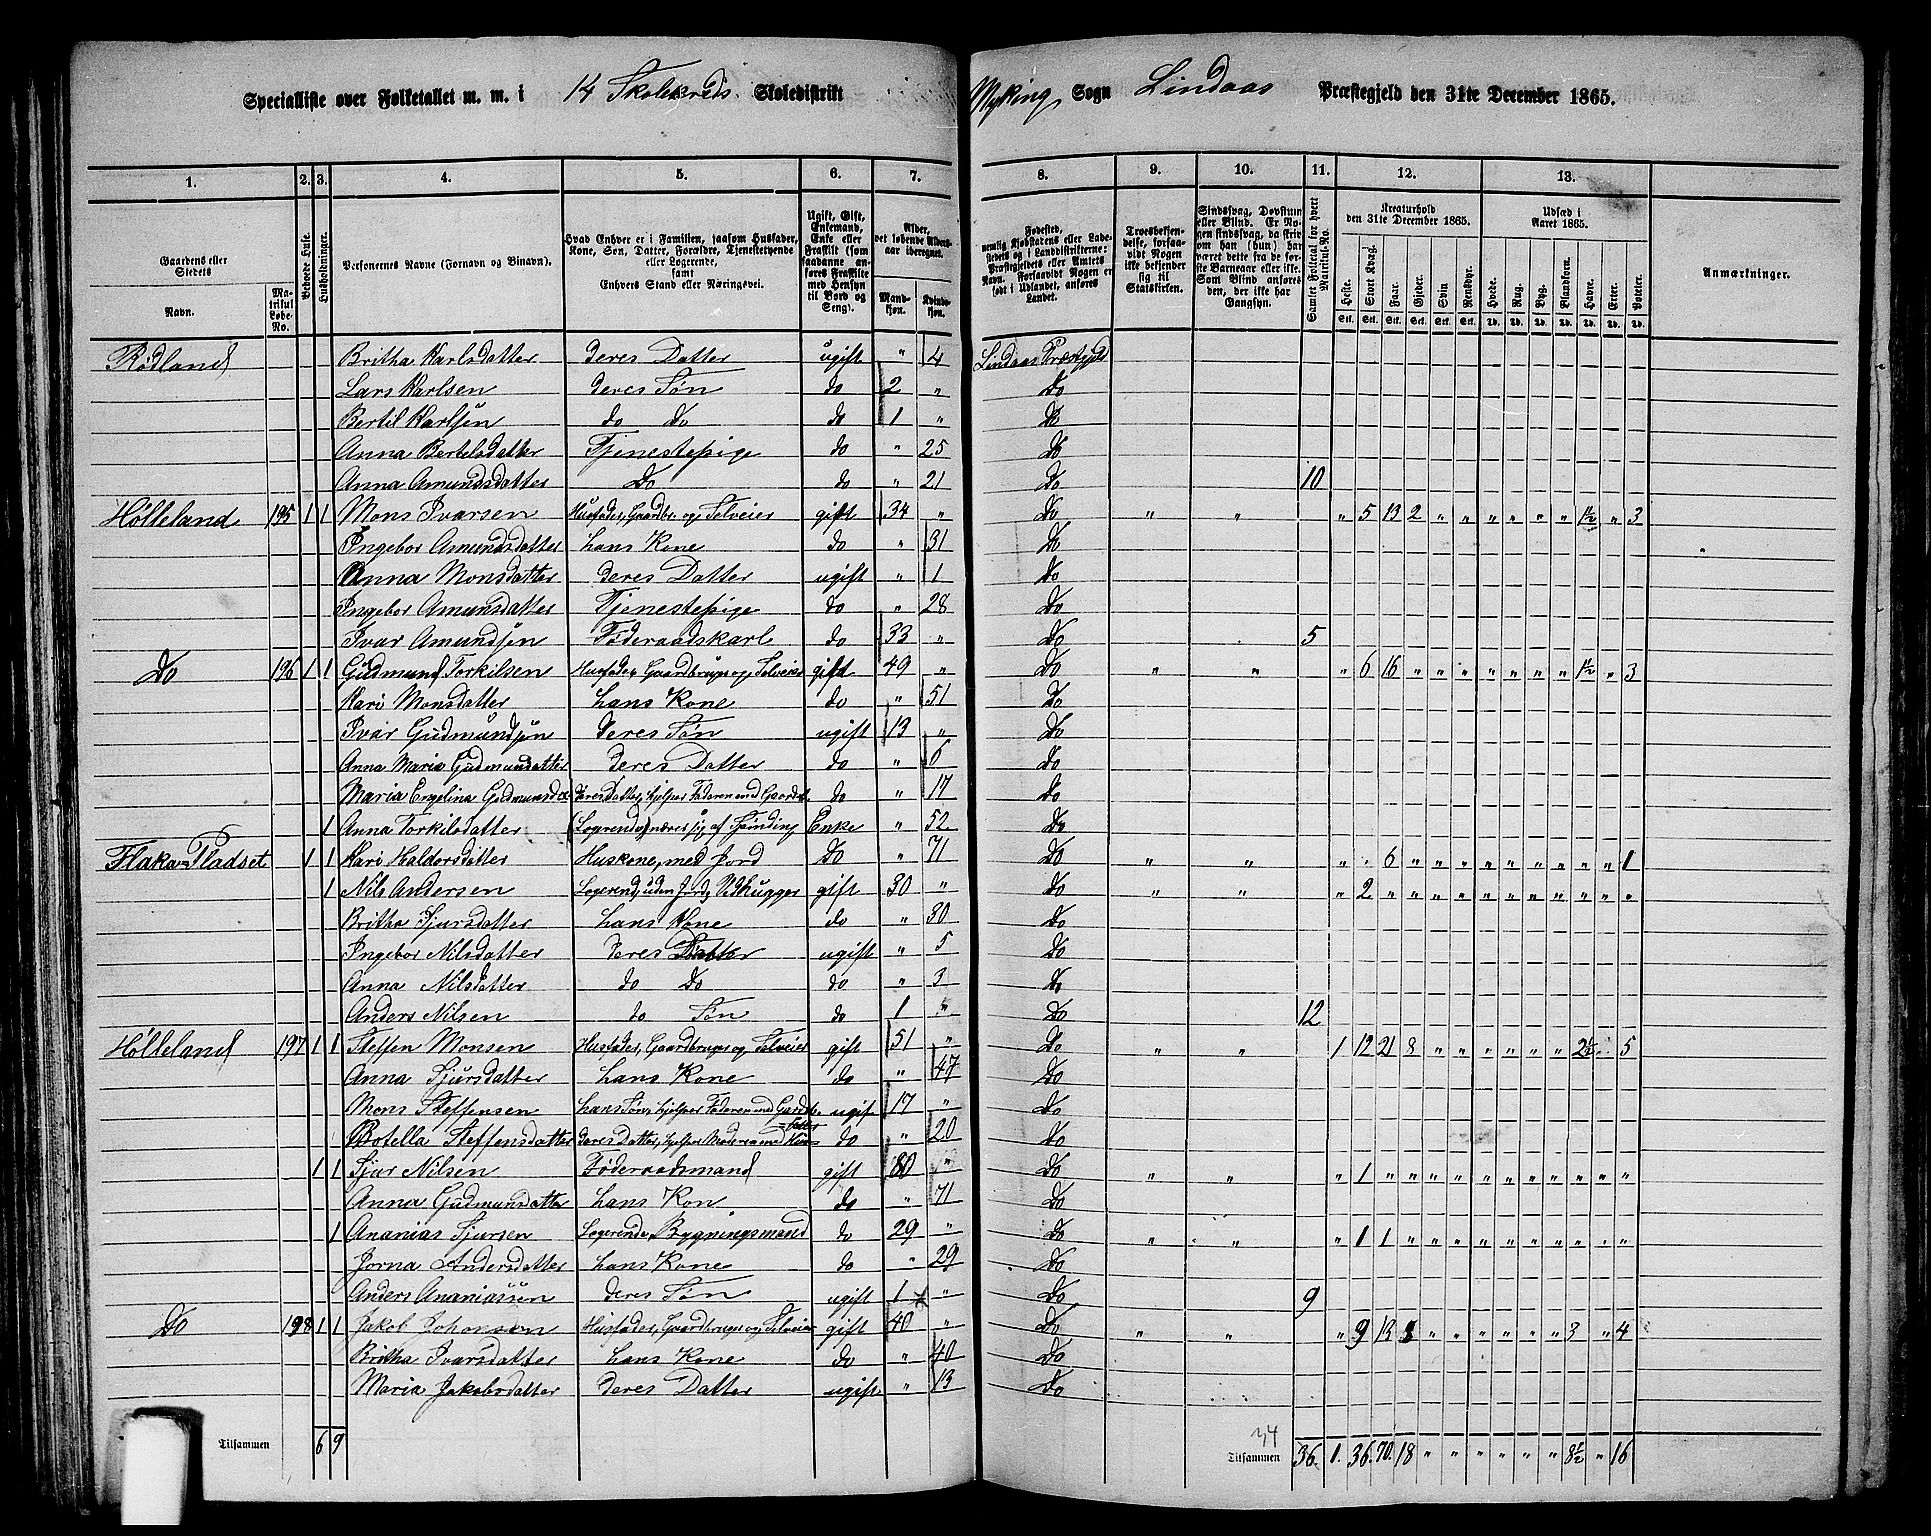 Specialliste over Folketallet m. m. i 14 Skolekreds Skoledistrikt Myking Sogn Lindaas Præstegjeld den 31te December 1865.
1. 2. 3. 4. 5. 6. 7. 8. 9. 10. 11. 12. 13.
Gaardens eller Stedets
Navn.
Matrikul Løbe-No.
Beboede Huse.
Husholdninger.
Personernes Navne (Fornavn og Binavn).
Hvad Enhver er i Familien, saasom Husfader, Kone, Søn, Datter, Forældre, Tjenestetyende eller Logerende, samt Enhvers Stand eller Næringsvei.
Ugift, Gift, Enkemand, Enke eller Fraskilt (som saadanne anføres Fraskilte med Hensyn til Bord og Seng).
Alder, det løbende Aldersaar iberegnet.
Mandkjøn. Kvindekjøn.
Fødested, nemlig Kjøbstadens eller Ladestedets og i Landdistrikterne: Præstegjeldets eller Amtets Navn. Forsaavidt Nogen er født i Udlandet, anføres Landet.
Troesbekjendelse, forsaavidt Nogen ikke bekjender sig til Statskirken.
Sindssvag, Døvstum eller Blind. Er Nogen sindssvag, da skrives om han (hun) har været dette fra sine Barneaar eller ikke. Som Blind anføres den, der ikke har Gangsyn.
Samlet Folketal for hvert Matrikul-No.
Kreaturhold den 31te December 1865.
Heste. Stort Kvæg. Faar. Gjeder. Svin Rensdyr.
Udsæd i Aaret 1865.
Hvede. Rug. Byg. Blandkorn. Havre. Erter. Poteter.
Anmærkninger.
Rødland Britha Karlsdatter deres Datter ugift " 4 Lindaas Præstgjeld
Lars Karlsen deres Søn do 2 " Do
Bertil Karlsen do Do do 1 " Do
Anna Bertelsdatter Tjenestepige do " 25 Do
Anna Amundsdatter Do do " 21 Do 10
Hølleland 195 1 1 Mons Ivarsen Husfader, Gaardbr. og Selveier gift 34 " Do " " " 5 13 2 " " " " " " 1½ " 3
Ingebor Amundsdatter hans Kone do " 31 Do
Anna Monsdatter deres Datter ugift " 1 Do
Ingebor Amunsdatter Tjenestepige do " 28 Do
Ivar Amundsen Føderaadskarl do 33 " Do 5
Do 196 1 1 Gudmund Torkilsen Husfader, Gaardbruger og Selveier gift 49 " Do " " " 6 16 " " " " " " " 1½ " 3
Kari Monsdatter hans Kone do " 51 Do
Ivar Gudmundsen deres Søn ugift 13 " Do
Anna Maria Gudmunsdatter deres Datter do " 6 Do
Maria Engelina Gudmunsd deres datter, hjelper Faderen med Gaardsb. do " 17 Do
1 Anna Torkilsdatter (Logrende) nærer sig af Spinding Enke " 52 Do
Flaka-Pladset 1 1 Kari Haldorsdatter Huskone, med Jord Do " 71 Do " " " " 6 " " " " " " " " " 1
1 Nils Andersen Logerend, uden Jord, Vedhugger gift 30 " Do " " " 2 " " " " " " " " " " "
Britha Sjursdatter hans Kone do " 30 Do
Ingebor Nilsdatter deres Datter ugift " 5 Do
Anna Nilsdatter do Do do " 3 Do
Anders Nilsen do Søn do 1 " Do 12
Hølleland 197 1 1 Steffen Monsen Husfader, Gaardbruger og Selveier gift 51 " Do " " 1 12 21 8 " " " " " " 2½ " 5
Anna Sjursdatter hans Kone do " 47 Do
Mons Steffensen hans Søn, hjelper Faderen med Gardsb. ugift 17 " Do
Botella Steffensdatter deres Datter, hjelper Moderen med Huus do " 20 Do
1 1 Sjur Nilsen Føderaadsmand gift 80 " Do " " " 1 " " " " " " " " " " "
Anna Gudmunsdatter hans Kon do " 71 Do
1 Ananias Sjursen Logerende, Bygningsmand do 29 " Do " " " 1 1 " " " " " " " " " "
Jorna Andersdatter hans Kone do " 29 Do
Anders Ananiassen deres Søn ugift 1 " Do 9
Do 198 1 1 Jakob Johansen Husfader, Gaardbruger og Selveier gift 40 " Do " " " 9 13 8 " " " " " " 3 " 4
Britha Ivarsdatter hans Kone do " 40 Do
Maria Jakobsdatter deres Datter ugift " 13 Do
34
Tilsammen 6 9 Tilsammen 36 1 36 70 18 " " " " " " 8½ " 16